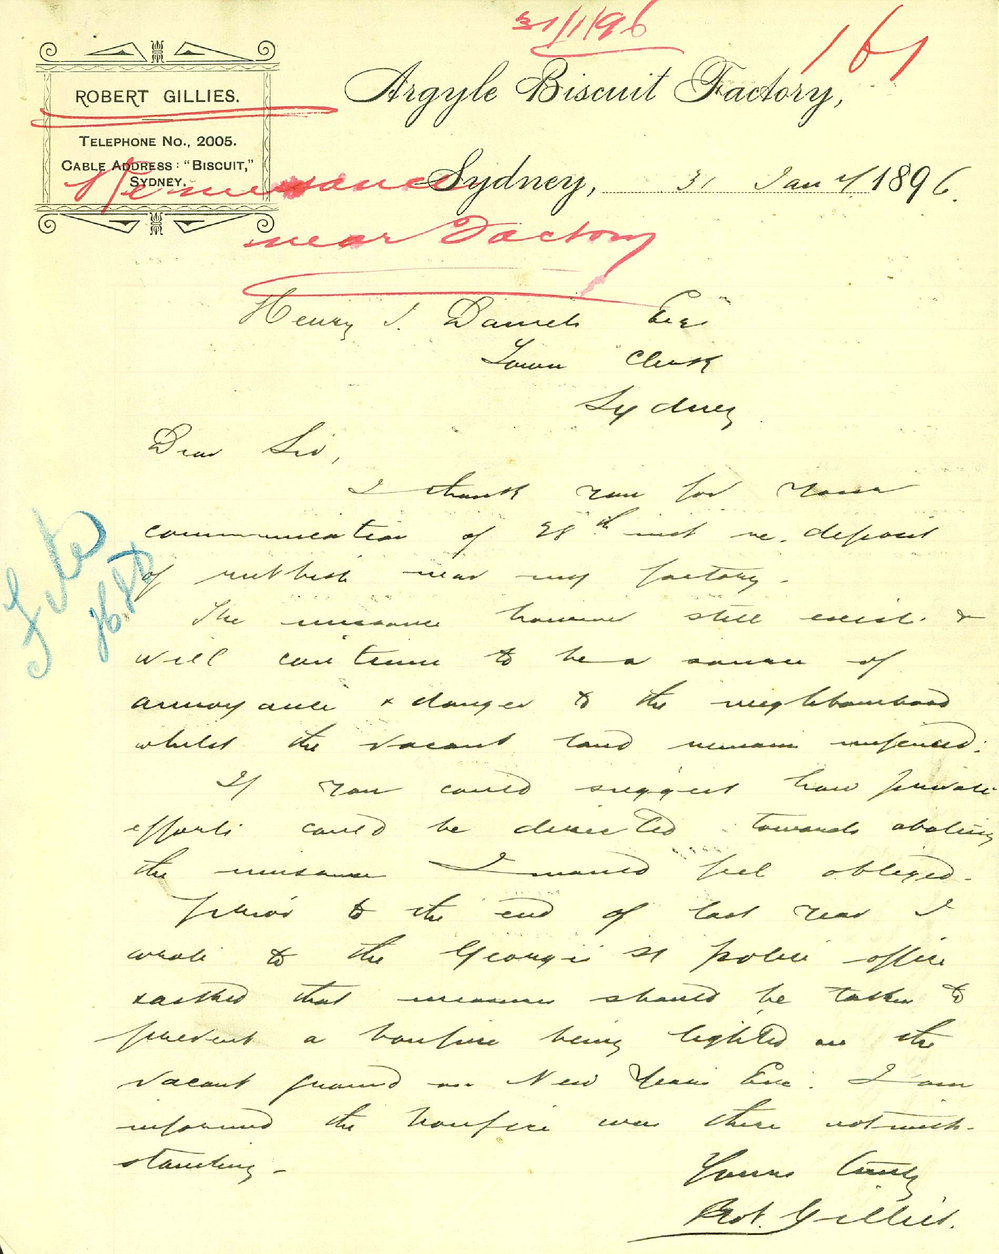 31/1/96
161
ROBERT GILLIES.
TELEPHONE NO., 2005.
CABLE ADDRESS: "BISCUIT,"
SYDNEY.
Argyle Biscuit Factory,
Sydney, 31 Jany 1896.
Re nuisance
near Factory
Henry J. Daniels Esq
Town Clerk
Sydney
Dear Sir,
I thank you for your
communication of 28th inst re. deposit
of rubbish near my factory.
The nuisance however still exists &
will continue to be a source of
annoyance & danger to the neighbourhood
whilst the vacant land remains unfenced.
If you could suggest how private
efforts could be directed towards abating
the nuisance I would feel obliged.
Prior to the end of last year I
wrote to the George's St police office
& asked that measures should be taken to
prevent a bonfire being lighted on the
vacant ground on New Years Eve. I am
informed the bonfire was there notwith-
standing.
Yours truly
Robt. Gillies.